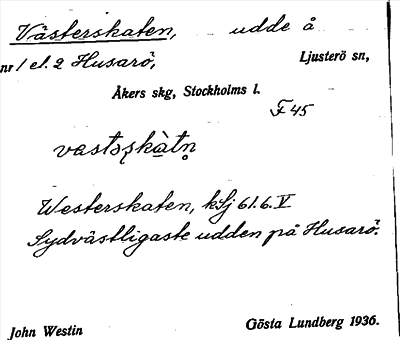 Västerskaten, udde å
nr 1 el. 2 Husarö, Ljusterö sn,
Åkers skg, Stockholms l.
F 45
Westerskaten, kSj 61.6.V
Sydvästligaste udden på Husarö.
John Westin Gösta Lundberg 1936.